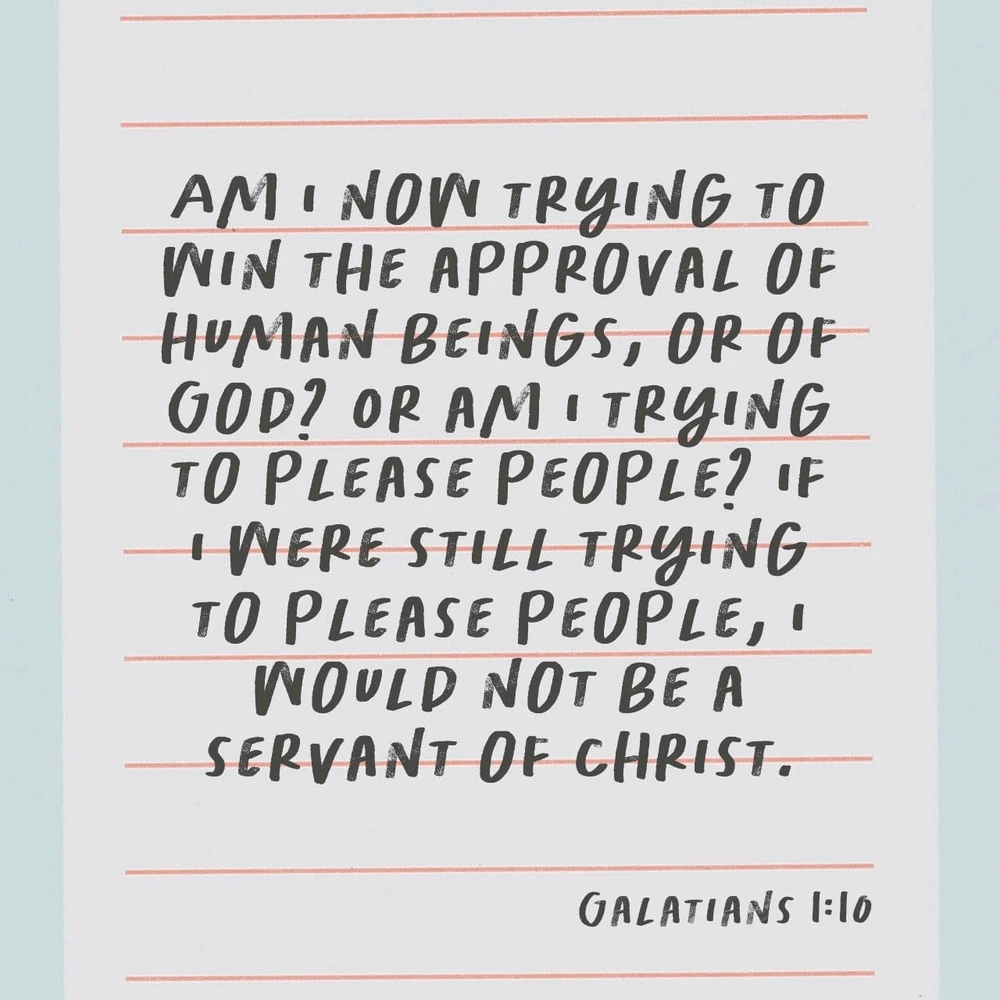 AM I NOW TRYING TO
WIN THE APPROVAL OF
HUMAN BEINGS, OR OF
GOD? OR AM I TRYING
TO PLEASE PEOPLE? IF
I WERE STILL TRYING
TO PLEASE PEOPLE, I
WOULD NOT BE A
SERVANT OF CHRIST.
GALATIANS 1:10